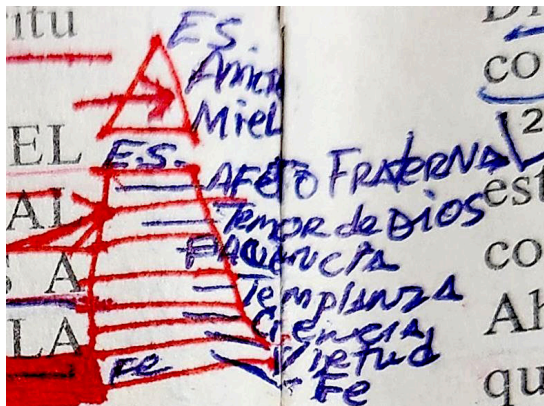 itu
ES.
Amor
Miel
EL
E.S.
AFETO FRATERNAL
AL
Temor de DIOS
PACIENCIA
S A
Templanza
Ciencia
LA
Virtud
Fe
Fe
co
2
est
co
Ah
qu